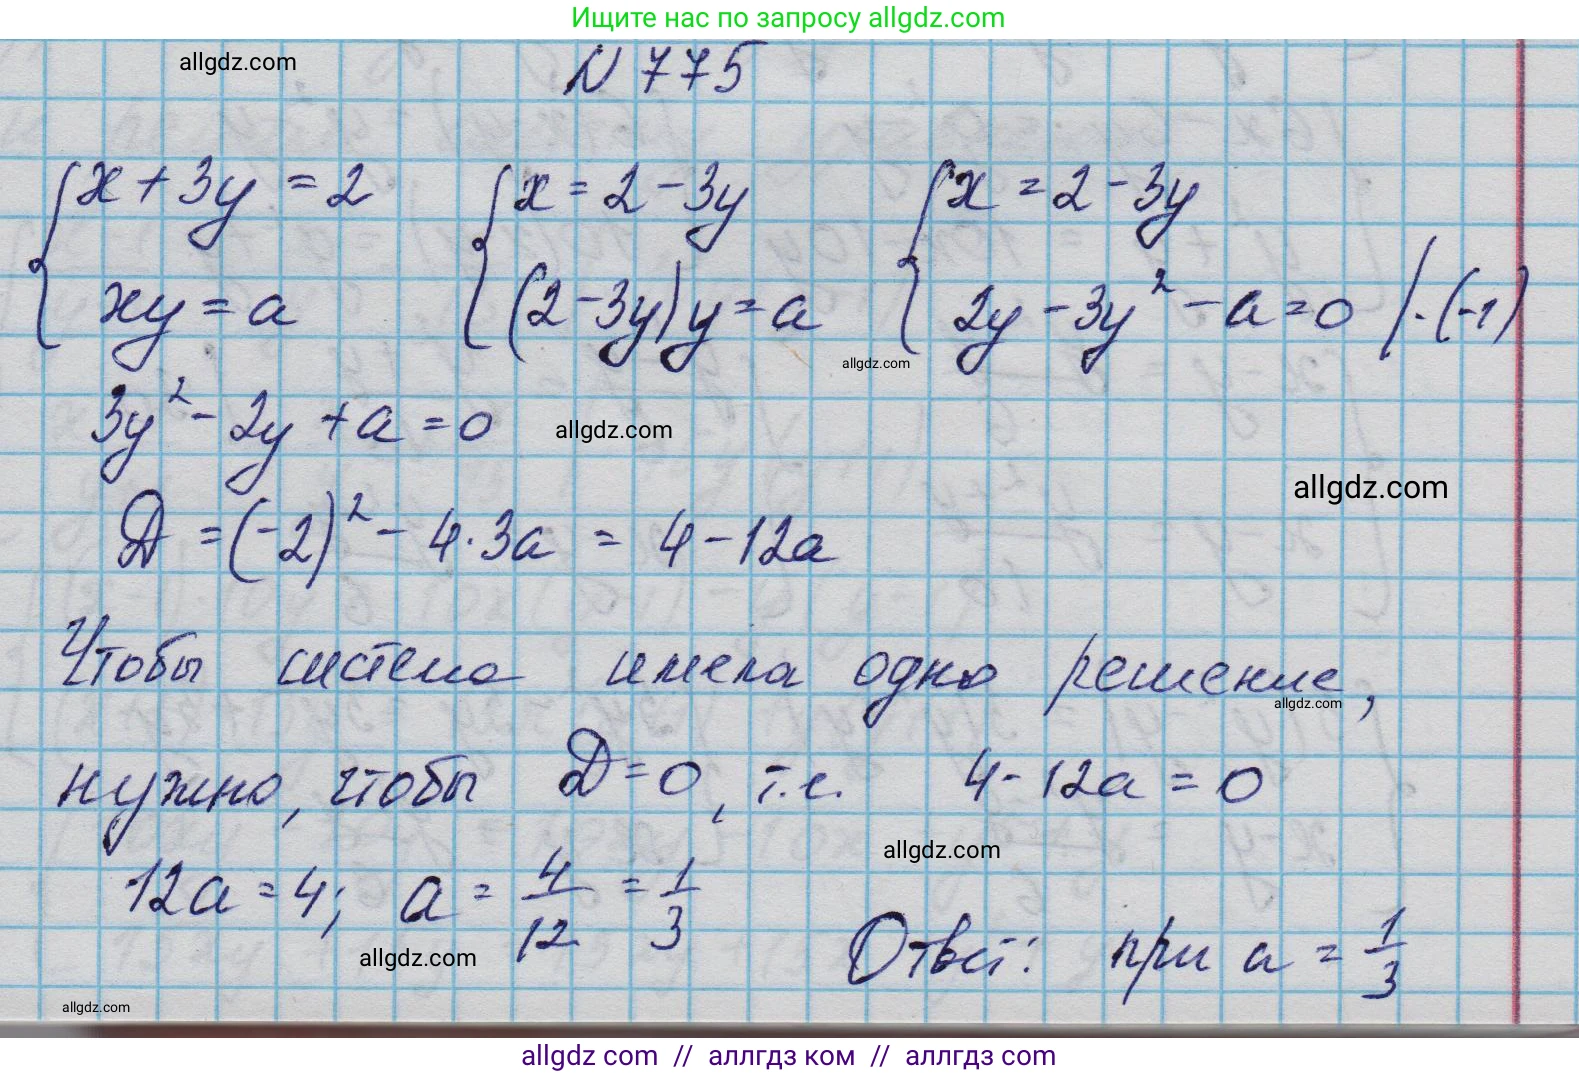 Ищите нас по запросу allgdz.com
allgdz.com
N 775
{x + 3y = 2 {x = 2 - 3y {x = 2 - 3y
xy = a (2 - 3y)y = a 2y - 3y² - a = 0 /·(-1)
allgdz.com
allgdz.com
3y² - 2y + a = 0
allgdz.com
allgdz.com
Д = (-2)² - 4·3a = 4 - 12a
Чтобы система имела одно решение,
allgdz.com
нужно, чтобы Д = 0, т.е. 4 - 12a = 0
allgdz.com
12a = 4; a = 4/12 = 1/3
Ответ: при a = 1/3
allgdz.com
allgdz.com
allgdz com // аллгдз ком // аллгдз com